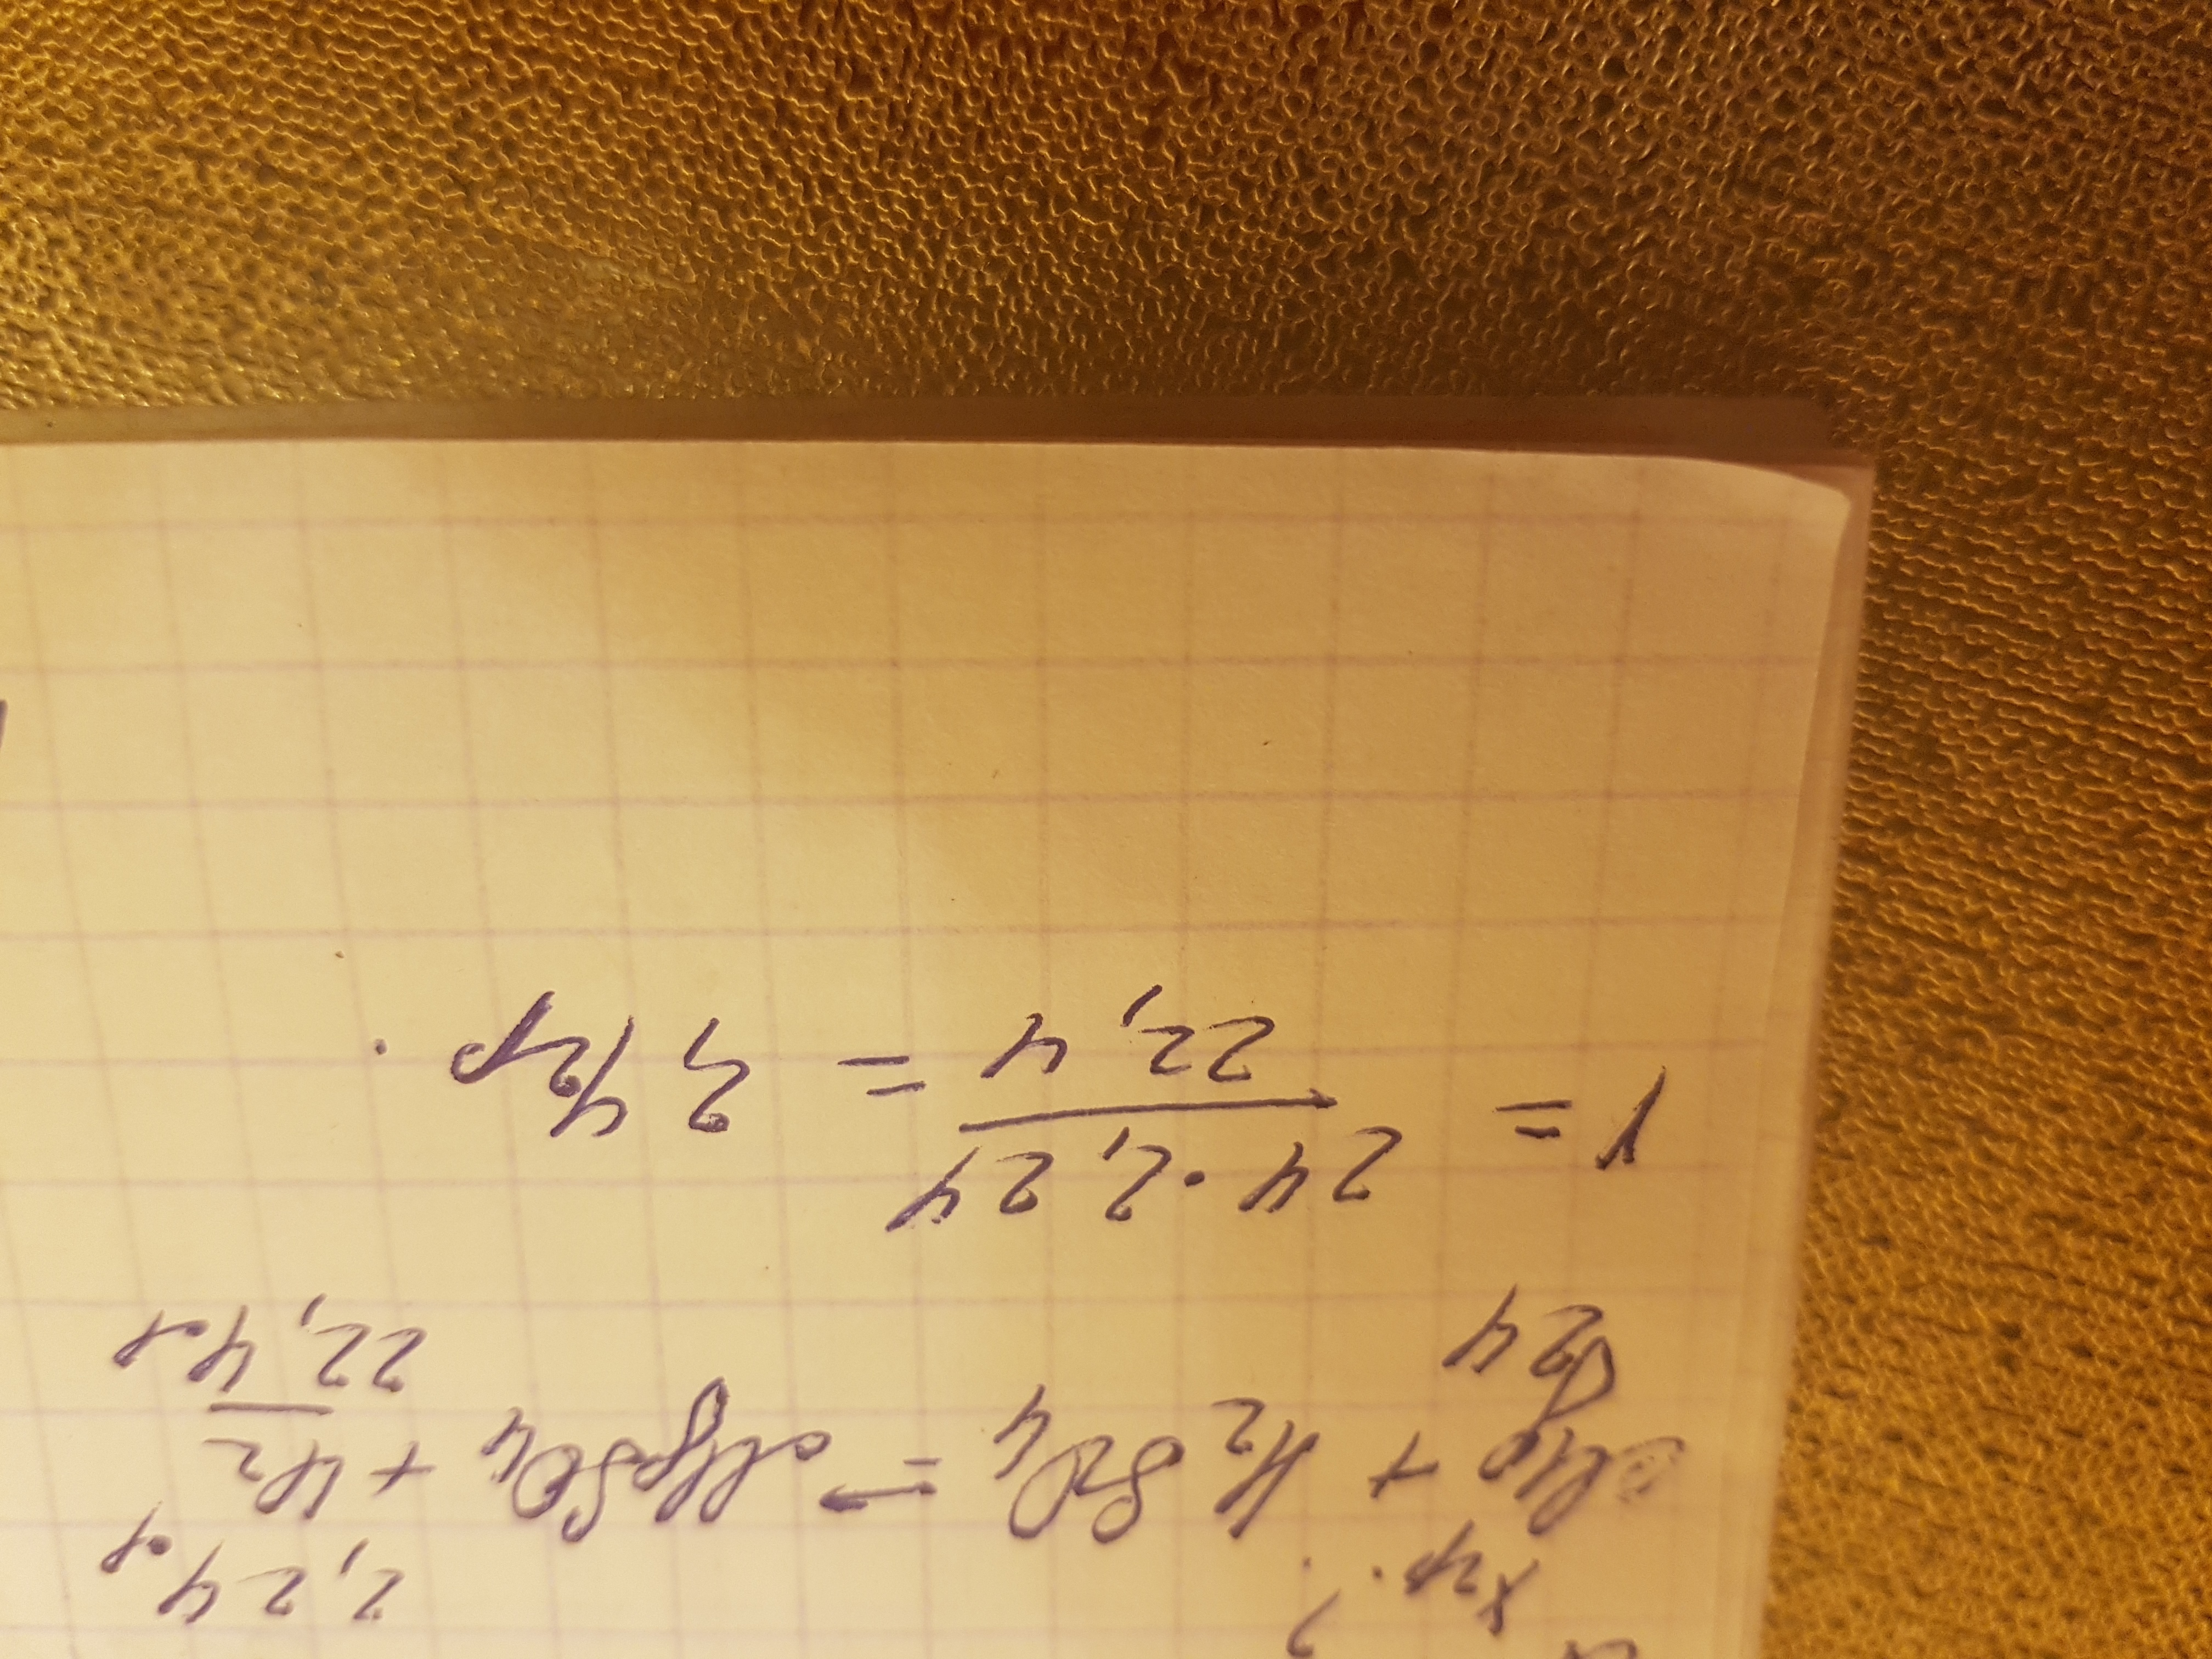 2,24л
Mg + H₂SO₄ = MgSO₄ + H₂
24 22,4л
= 24 · 2,24 / 22,4 = 2,4